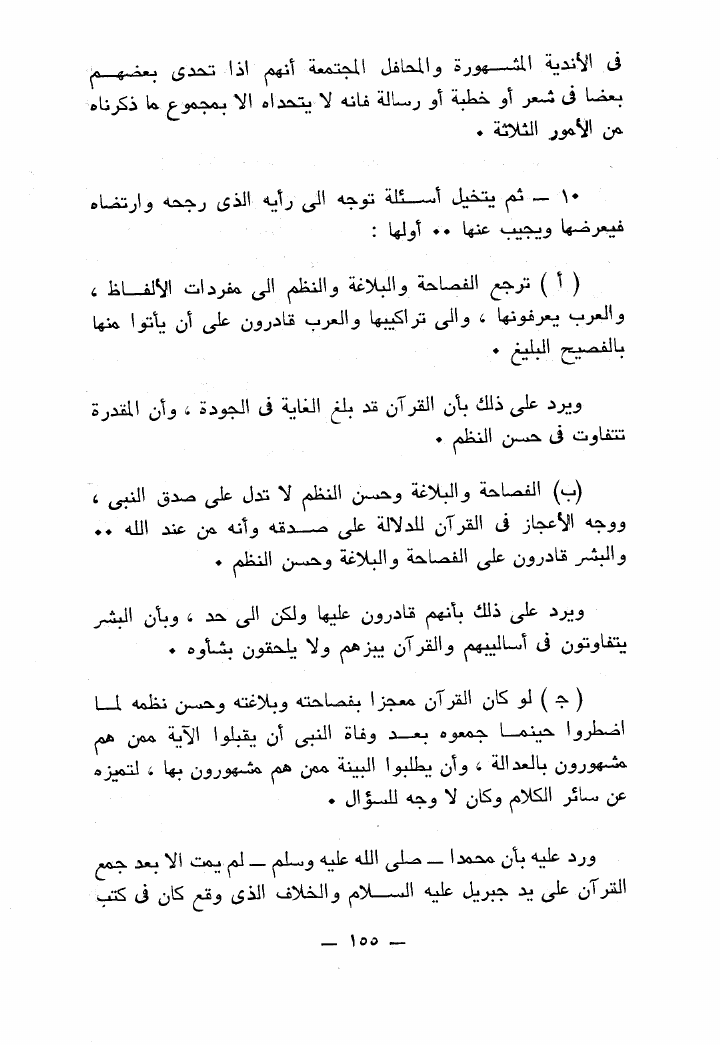 فى الأندية المشهورة والمحافل المجتمعة أنهم اذا تحدى بعضهم
بعضا فى شعر أو خطبة أو رسالة فانه لا يتحداه الا بمجموع ما ذكرناه
من الأمور الثلاثة ٠
١٠ — ثم يتخيل أسئلة توجه الى رأيه الذى رجحه وارتضاه
فيعرضها ويجيب عنها ٠٠ أولها :
( أ ) ترجع الفصاحة والبلاغة والنظم الى مفردات الألفاظ ،
والعرب يعرفونها ، والى تراكيبها والعرب قادرون على أن يأتوا منها
بالفصيح البليغ ٠
ويرد على ذلك بأن القرآن قد بلغ الغاية فى الجودة ، وأن المقدرة
تتفاوت فى حسن النظم ٠
(ب) الفصاحة والبلاغة وحسن النظم لا تدل على صدق النبى ،
ووجه الأعجاز فى القرآن للدلالة على صدقه وأنه من عند الله ٠٠
والبشر قادرون على الفصاحة والبلاغة وحسن النظم ٠
ويرد على ذلك بأنهم قادرون عليها ولكن الى حد ، وبأن البشر
يتفاوتون فى أساليبهم والقرآن يبزهم ولا يلحقون بشأوه ٠
( ج ) لو كان القرآن معجزا بفصاحته وبلاغته وحسن نظمه لما
اضطروا حينما جمعوه بعد وفاة النبى أن يقبلوا الآية ممن هم
مشهورون بالعدالة ، وأن يطلبوا البينة ممن هم مشهورون بها ، لتميزه
عن سائر الكلام وكان لا وجه للسؤال ٠
ورد عليه بأن محمدا — صلى الله عليه وسلم — لم يمت الا بعد جمع
القرآن على يد جبريل عليه السلام والخلاف الذى وقع كان فى كتب
— ١٥٥ —